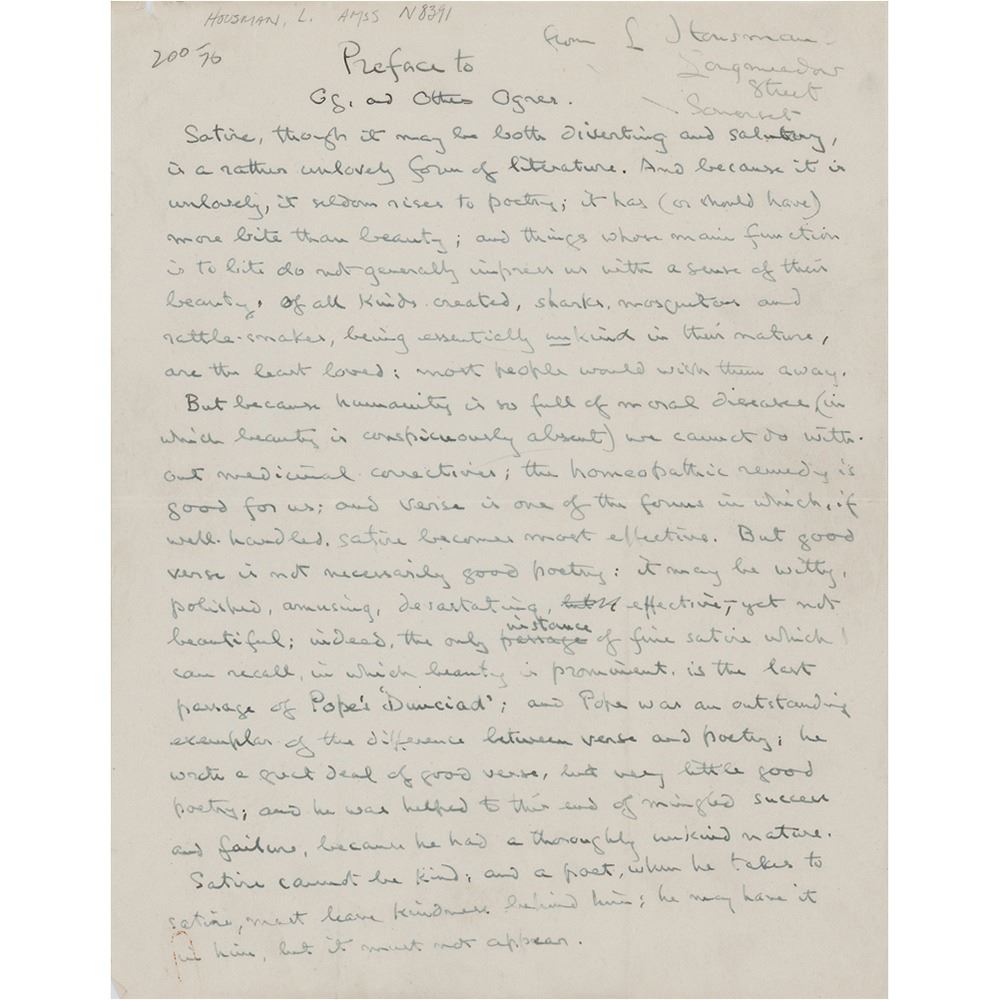 HOUSMAN, L. AMSS N8391
from L Housman
200/76
Longmeadow
Street
Somerset
Preface to
Og, and Other Ogres.
Satire, though it may be both diverting and salutary,
is a rather unlovely form of literature. And because it is
unlovely, it seldom rises to poetry; it has (or should have)
more bite than beauty; and things whose main function
is to bite do not generally impress us with a sense of their
beauty. Of all kinds created, sharks, mosquitoes and
rattle-snakes, being essentially unkind in their nature,
are the least loved: most people would wish them away.
But because humanity is so full of moral diseases (in
which beauty is conspicuously absent) we cannot do with-
out medicinal correctives; the homeopathic remedy is
good for us; and verse is one of the forms in which, if
well-handled, satire becomes most effective. But good
verse is not necessarily good poetry: it may be witty,
polished, amusing, devastating, effective,—yet not
instance
beautiful; indeed, the only passage of fine satire which I
can recall, in which beauty is prominent, is the last
passage of Pope's 'Dunciad'; and Pope was an outstanding
exemplar of the difference between verse and poetry; he
wrote a great deal of good verse, but very little good
poetry; and he was helped to this end of mingled success
and failure, because he had a thoroughly unkind nature.
Satire cannot be kind; and a poet, when he takes to
satire, must leave kindness behind him; he may have it
in him, but it must not appear.